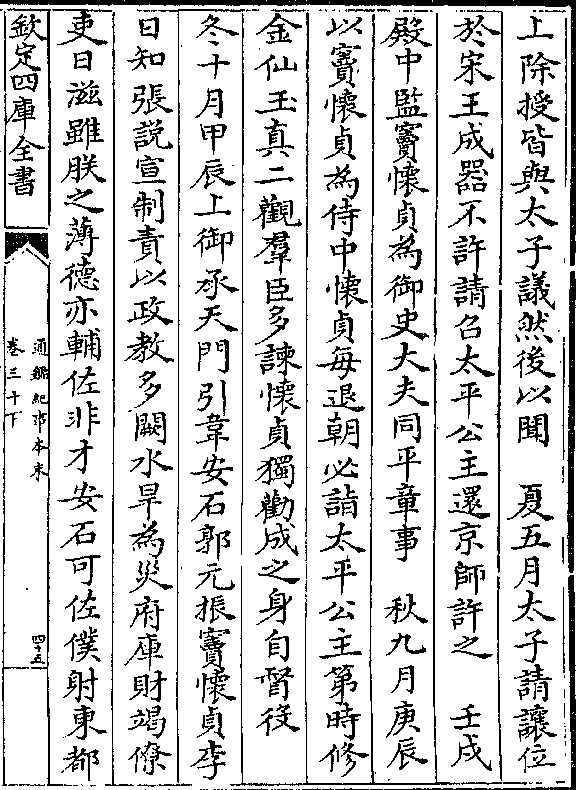 上除授皆與太子議然後以聞　夏五月太子請讓位
於宋王成器不許請召太平公主還京師許之　壬戌
殿中監竇懷貞為御史大夫同平章事　秋九月庚辰
以竇懷貞為侍中懷貞每退朝必詣太平公主第時修
金仙玉真二觀羣臣多諫懷貞獨勸成之身自督役
冬十月甲辰上御承天門引韋安石郭元振竇懷貞李
日知張説宣制責以政教多闕水旱為災府庫財竭僚
吏日滋雖朕之薄德亦輔佐非才安石可左僕射東都
欽定四庫全書
通鑑紀事本末
卷三十下
四十五